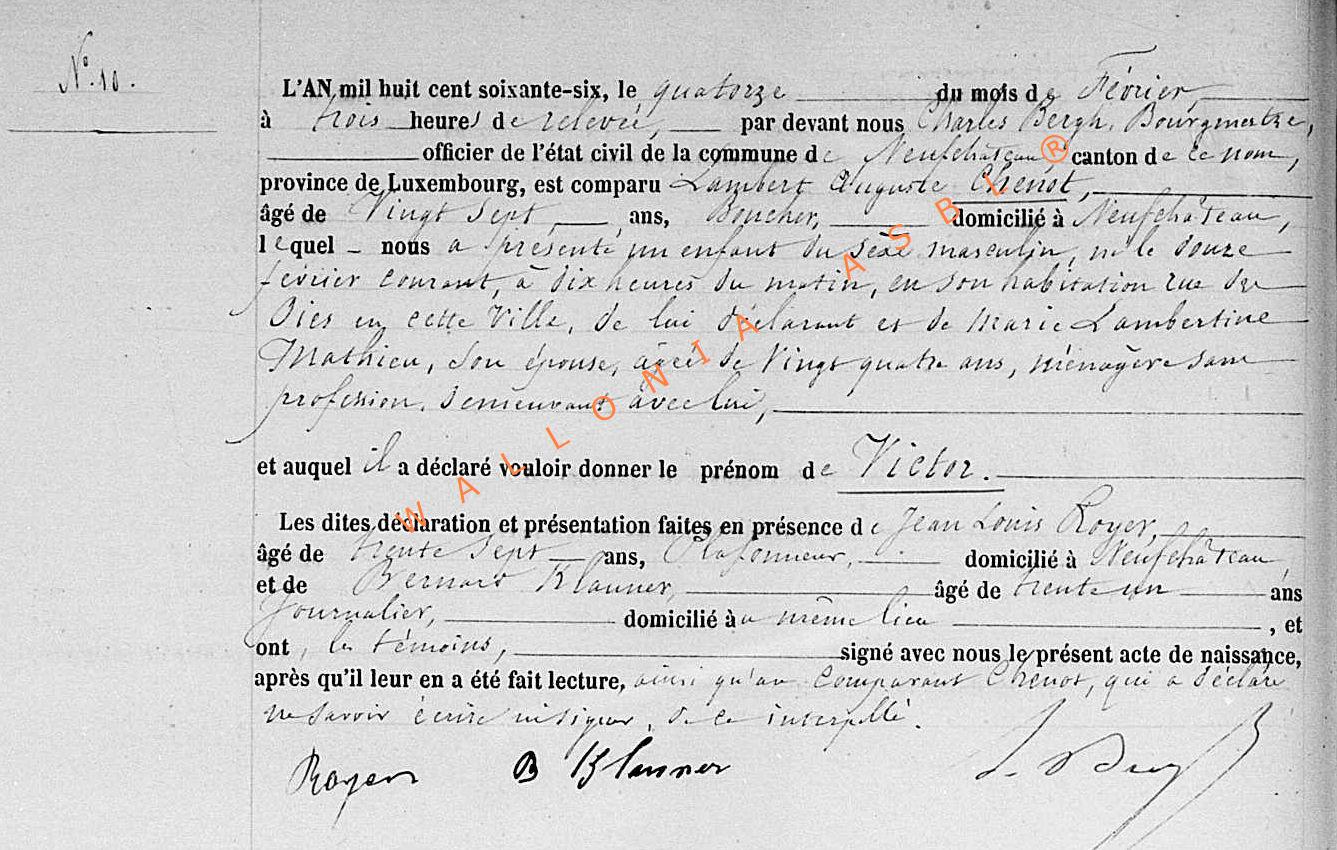 N° 10.
L'AN mil huit cent soixante-six, le quatorze du mois de Février,
à trois heures de relevée, par devant nous Charles Bergh, Bourgmestre,
officier de l'état civil de la commune de Neufchâteau, canton de ce nom,
province de Luxembourg, est comparu Lambert Auguste Chenot,
âgé de Vingt Sept ans, Boucher, domicilié à Neufchâteau,
lequel nous a présenté un enfant du sexe masculin, né le douze
février courant, à dix heures du matin, en son habitation rue
en cette Ville, de lui déclarant et de Marie Lambertine
Mathieu, son épouse, âgée de Vingt quatre ans, ménagère sans
profession, demeurant avec lui,
et auquel il a déclaré vouloir donner le prénom de Victor.
Les dites déclaration et présentation faites en présence de Jean Louis Royer,
âgé de trente sept ans, Plafonneur, domicilié à Neufchâteau
et de Bernard Klanner, âgé de trente un ans
Journalier, domicilié à même lieu, et
ont, les témoins, signé avec nous le présent acte de naissance,
après qu'il leur en a été fait lecture, ainsi qu'au Comparant Chenot, qui a déclaré
ne savoir écrire ni signer, de ce interpellé.
Royer B Klanner
WALLONIA ASBL ®